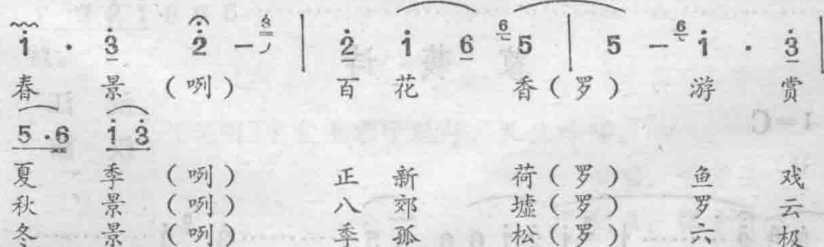 i · 3 2 - | 2 i 6 5 | 5 - i · 3 |
春 景 （咧） 百 花 香（罗） 游 赏
5·6 i 3
夏 季 （咧） 正 新 荷（罗） 鱼 戏
秋 景 （咧） 八 郊 墟（罗） 罗 云
冬 景 （咧） 季 孤 松（罗） 六 极